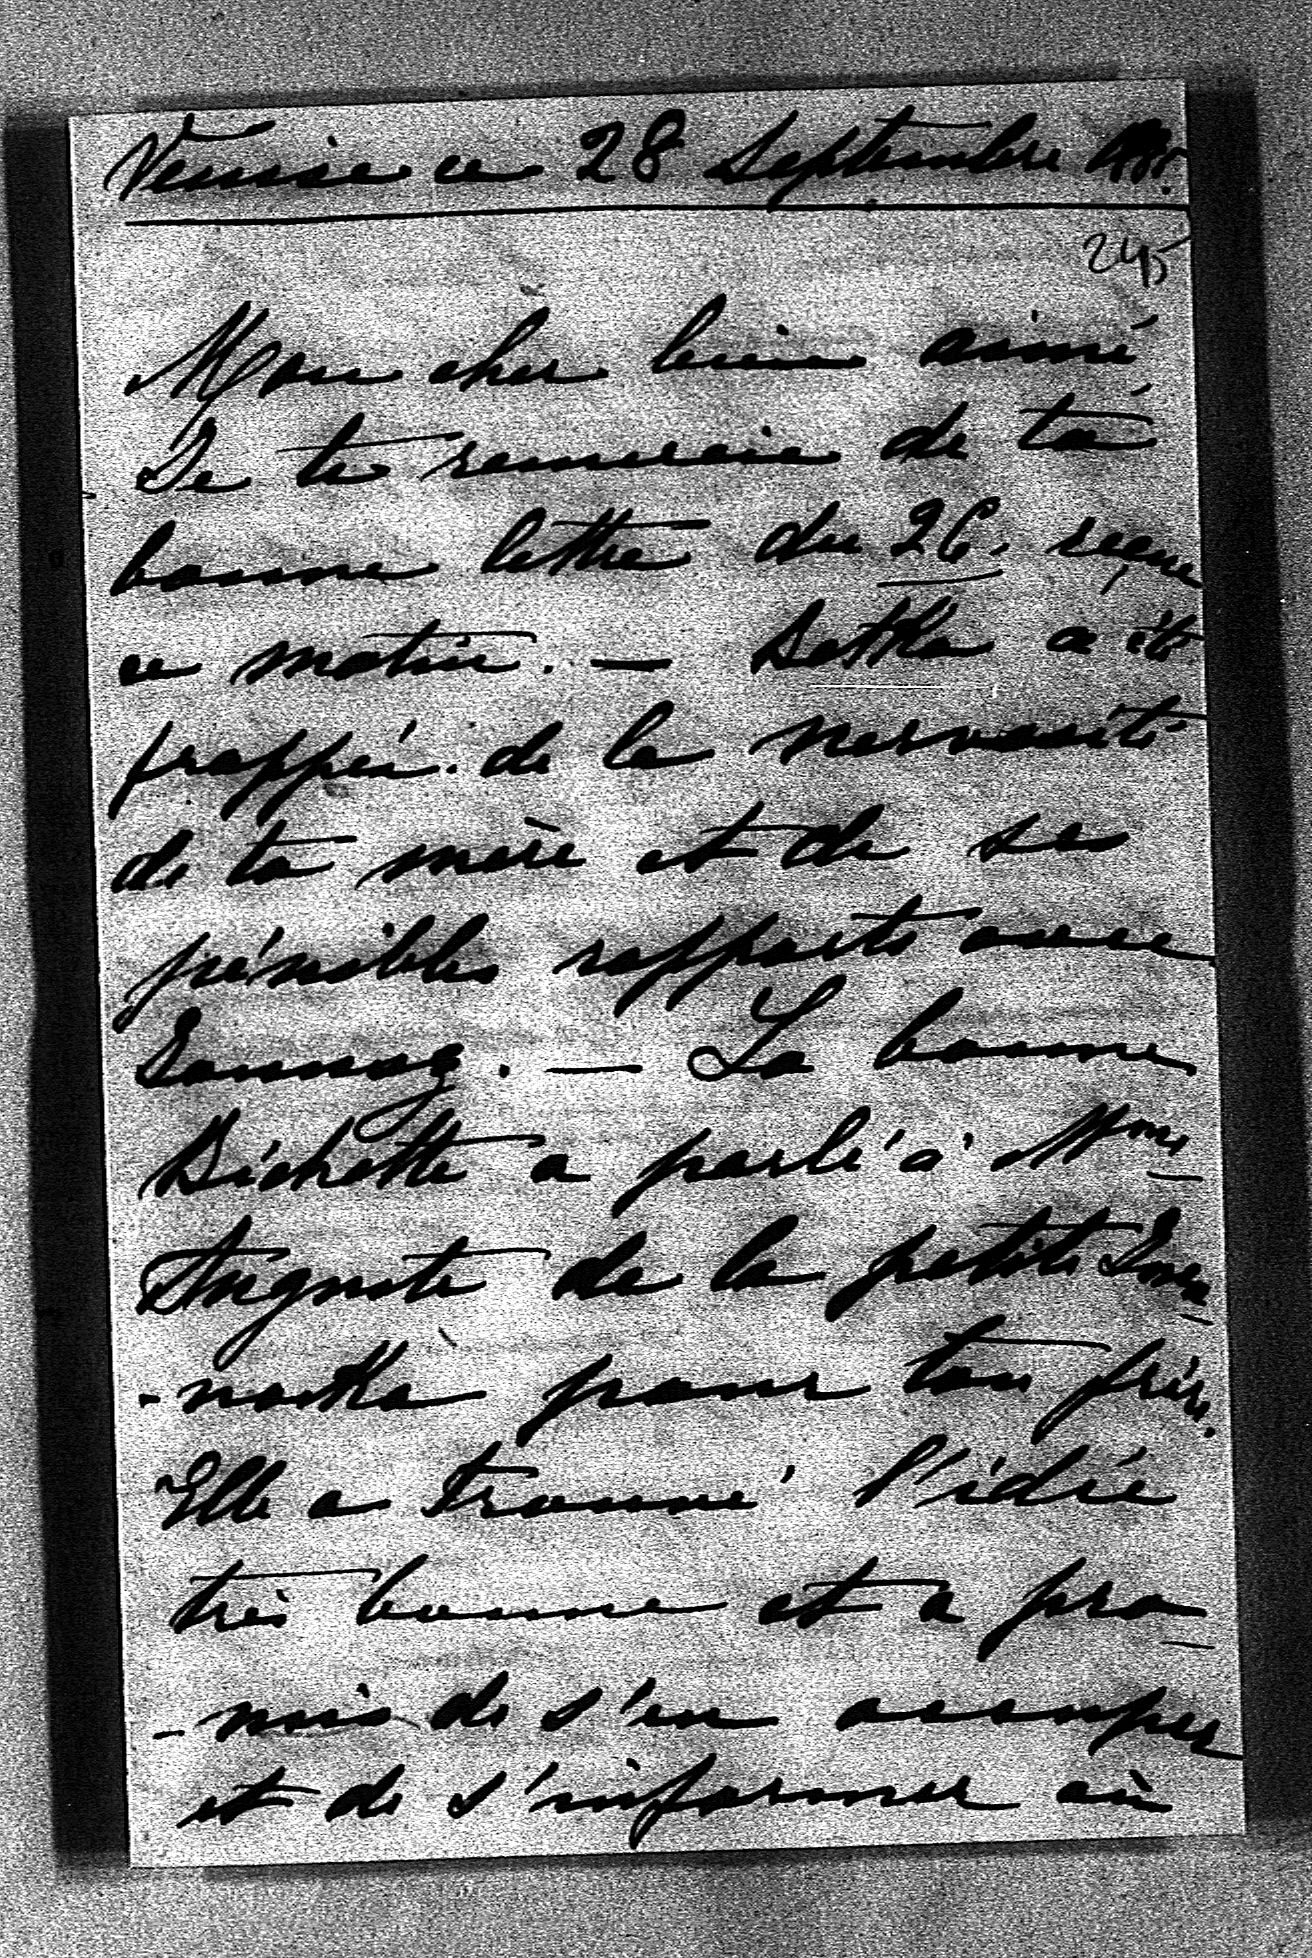 Venise ce 28 Septembre
245
Mon cher bien aimé
Je te remercie de ta
bonne lettre du 26. reçue
ce matin. — Betka a été
frappée de la nervosité
de ta mère et de ses
pénibles rapports avec
La bonne
Bichette a parlé à Mme
Auguste de la petite
pour ton frère.
Elle a trouvé l'idée
très bonne et a pro_
_mis de s'en occuper
et de s'informer où